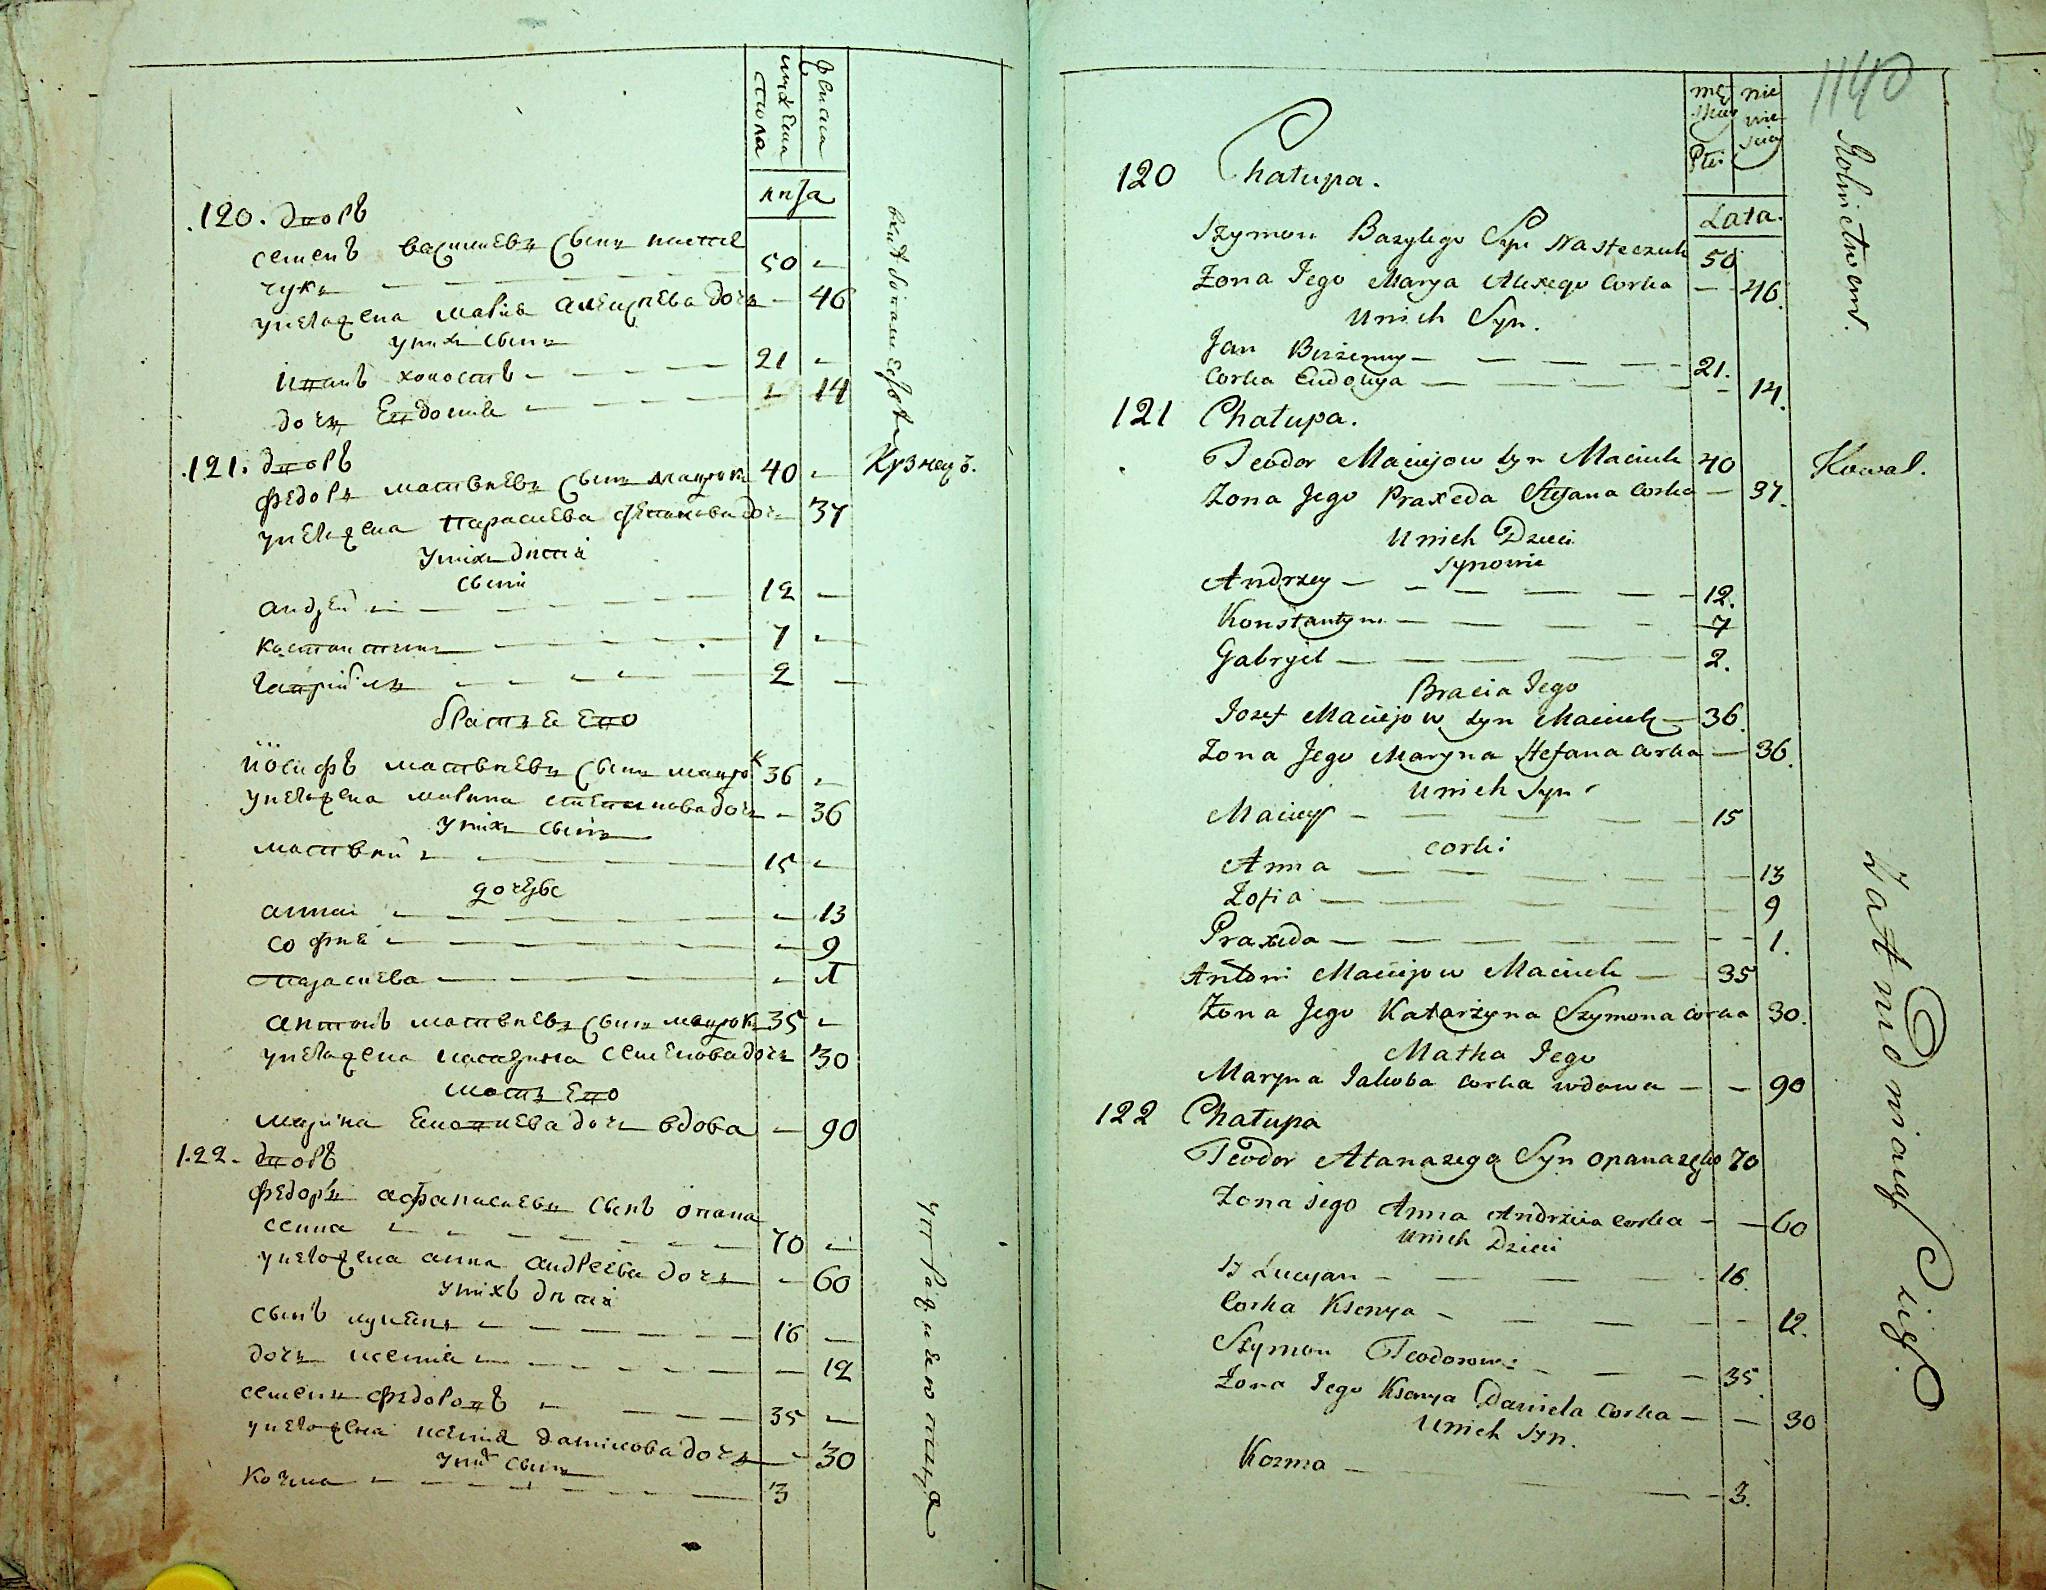 мужеска
пола
женска
лѣта
120. дворъ
семенъ васильевъ сынъ насте
чукъ 50
у него жена мария алексѣева дочь 46
у нихъ сынъ
иванъ холостъ 21
дочь Евдокия 14
121. дворъ
федоръ матвѣевъ сынъ мацюкъ 40 Кузнецъ.
у него жена парасцева степанова дочь 37
у нихъ дѣти
сыни
андрей 12
костантинъ 7
гавриилъ 2
братья Ево
иосифъ матвѣевъ сынъ мацюк 36
у него жена марина степанова дочь 36
у нихъ сынъ
матвѣй 15
дочери
анна 13
софия 9
парасцева 1
антонъ матвѣевъ сынъ мацюкъ 35
у него жена катерина семенова дочь 30
мать Ево
марина дочь вдова 90
122. дворъ
федоръ афанасиевъ сынъ опана
сенка 70
у него жена анна андреева дочь 60
у нихъ дѣти
сынъ лукьянъ 16
дочь ксения 12
семенъ федоровъ 35
у него жена ксения данилова дочь 30
у них сынъ
козма 3
1140
męskiey
Płci
niewiesciey
Lata.
120 Chałupa.
Szymon Bazylego Syn Nasteczuk 50
Żona Jego Marya Alexego Corka 46.
U nich Syn.
Jan Bezżenny 21.
Corka Eudokya 14.
Rolnictwem.
121 Chałupa.
Teodor Maciejow Syn Maciuk 40 Kowal.
Żona Jego Praxeda Stefana Corka 37.
U nich Dzieci
Synowie
Andrzey 12.
Konstantyn 7
Gabryel 2.
Bracia Jego
Jozef Maciejow Syn Maciuk 36.
Żona Jego Maryna Stefana Corka 36.
U nich Syn
Maciey 15
Corki
Anna 13
Zofia 9
Praxeda 1.
Antoni Maciejow Maciuk 35
Żona Jego Katarzyna Szymona Corka 30.
Matka Jego
Maryna Jakoba Corka wdowa 90
122 Chałupa
Teodor Atanazego Syn Opanazenko 70
Żona jego Anna Andrzeia Corka 60
U nich Dzieci
S. Lucyan 16.
Corka Ksenya 12.
Szymon Teodorow 35.
Żona Jego Ksenya Daniela Corka 30
U nich Syn.
Kozma 3.